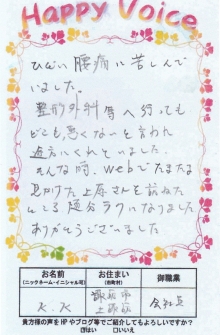 Happy Voice
ひどい腰痛に苦しんで
いました。
整形外科等へ行っても
どこも悪くないと言われ
途方にくれていました。
そんな時、webでたまたま
見かけた上原さんを訪ねた
随分ラフになりました
ありがとうございました。
お名前
(ニックネーム・イニシャル可)
お住まい
(市町村)
御職業
K.K
諏訪市
上諏訪
会社員
貴方様の声をHPやブログ等でご紹介してもよろしいですか?
はい □いいえ